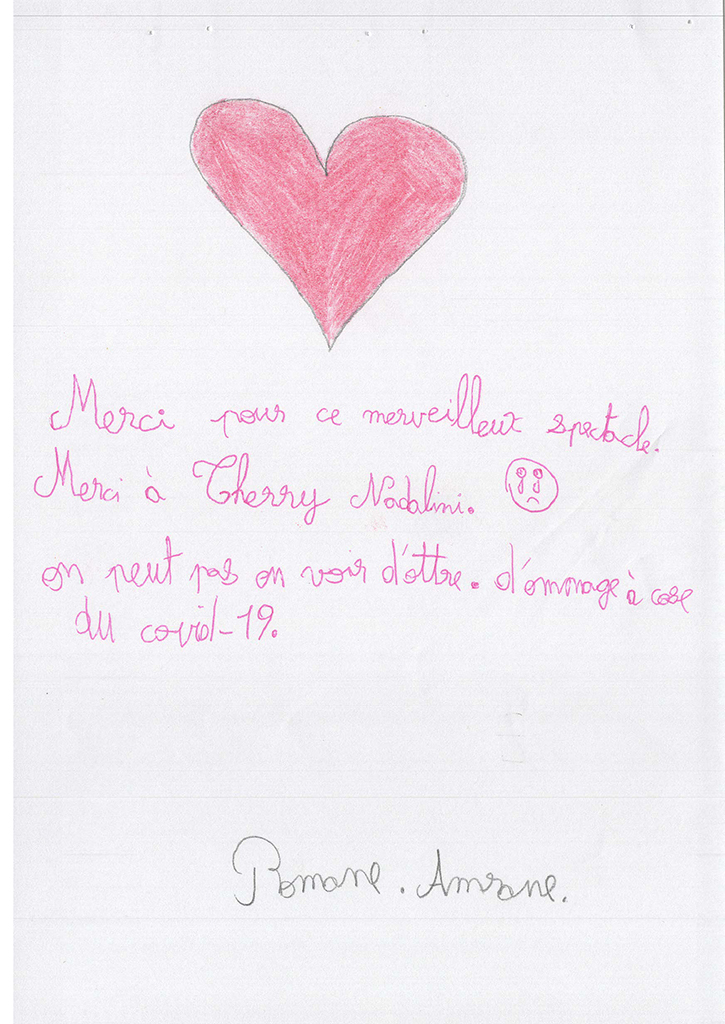 Merci pour ce merveilleux spectacle.
Merci à Therry Nadalini.
on peut pas en voir d'ottre. d'ommage à cose
du covid-19.
Romane. Amrane.